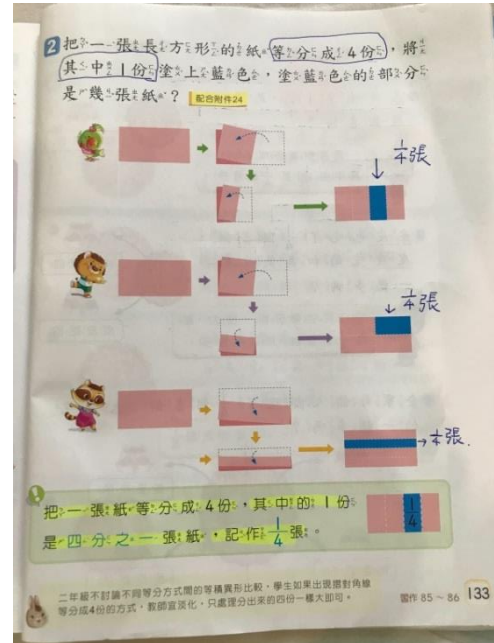 2 把一張長方形的紙等分成4份，將
其中1份塗上藍色，塗藍色的部分
是幾張紙？ 配合附件24
1/4張
1/4張
1/4張.
把一張紙等分成4份，其中的1份
是四分之一張紙，記作1/4張。
1/4
二年級不討論不同等分方式間的等積異形比較，學生如果出現摺對角線
等分成4份的方式，教師宜淡化，只處理分出來的四份一樣大即可。
習作 85～86 133